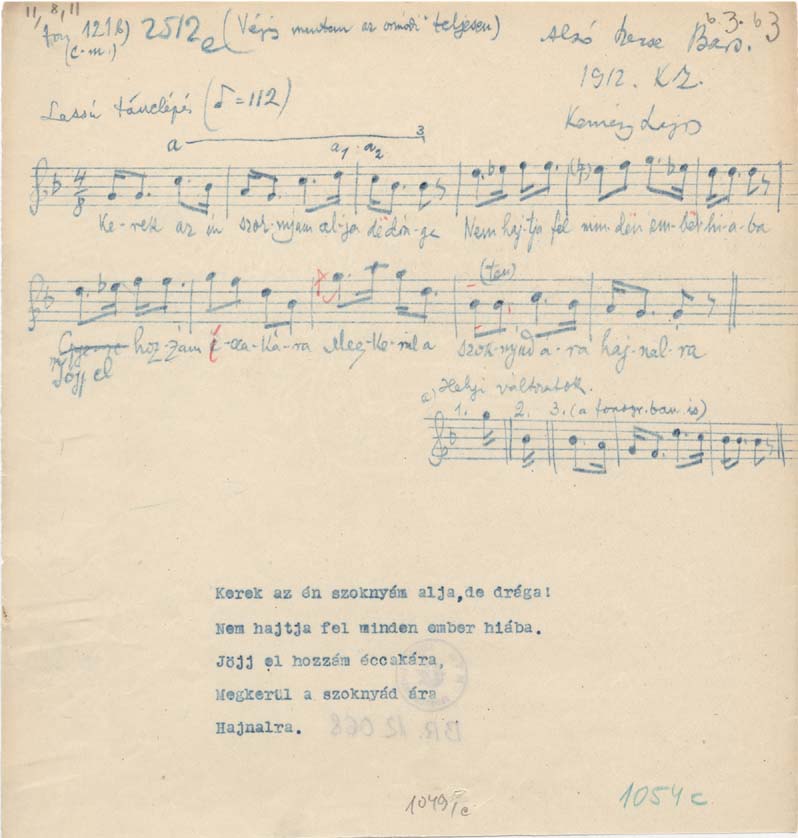 11, 8, 11
1216) 2512e (Végig mentan az ománi teljesen) Alsó Kerse Bars. b 3. 63
(c.m.)
1912. K.Z.
Lassú tánclépés (♪=112) Kemény Lajos
a 3
a1 a2
4/8
Ke-rek az én szok-nyám al-ja dë drá-ga Nem haj-tja fël min-dën em-bër hi-á-ba
(ten)
Gyenge hoz-zám é-cca-ká-ra Meg-ke-rül a szok-nyád á-ra haj-nal-ra
Jöjj el
a) Helyi változatok.
1. 2. 3. (a fonogr.-ban is)
Kerek az én szoknyám alja,de drága!
Nem hajtja fel minden ember hiába.
Jöjj el hozzám éccakára,
Megkerül a szoknyád ára
Hajnalra.
BR. 12 068
1049/c 1054 c